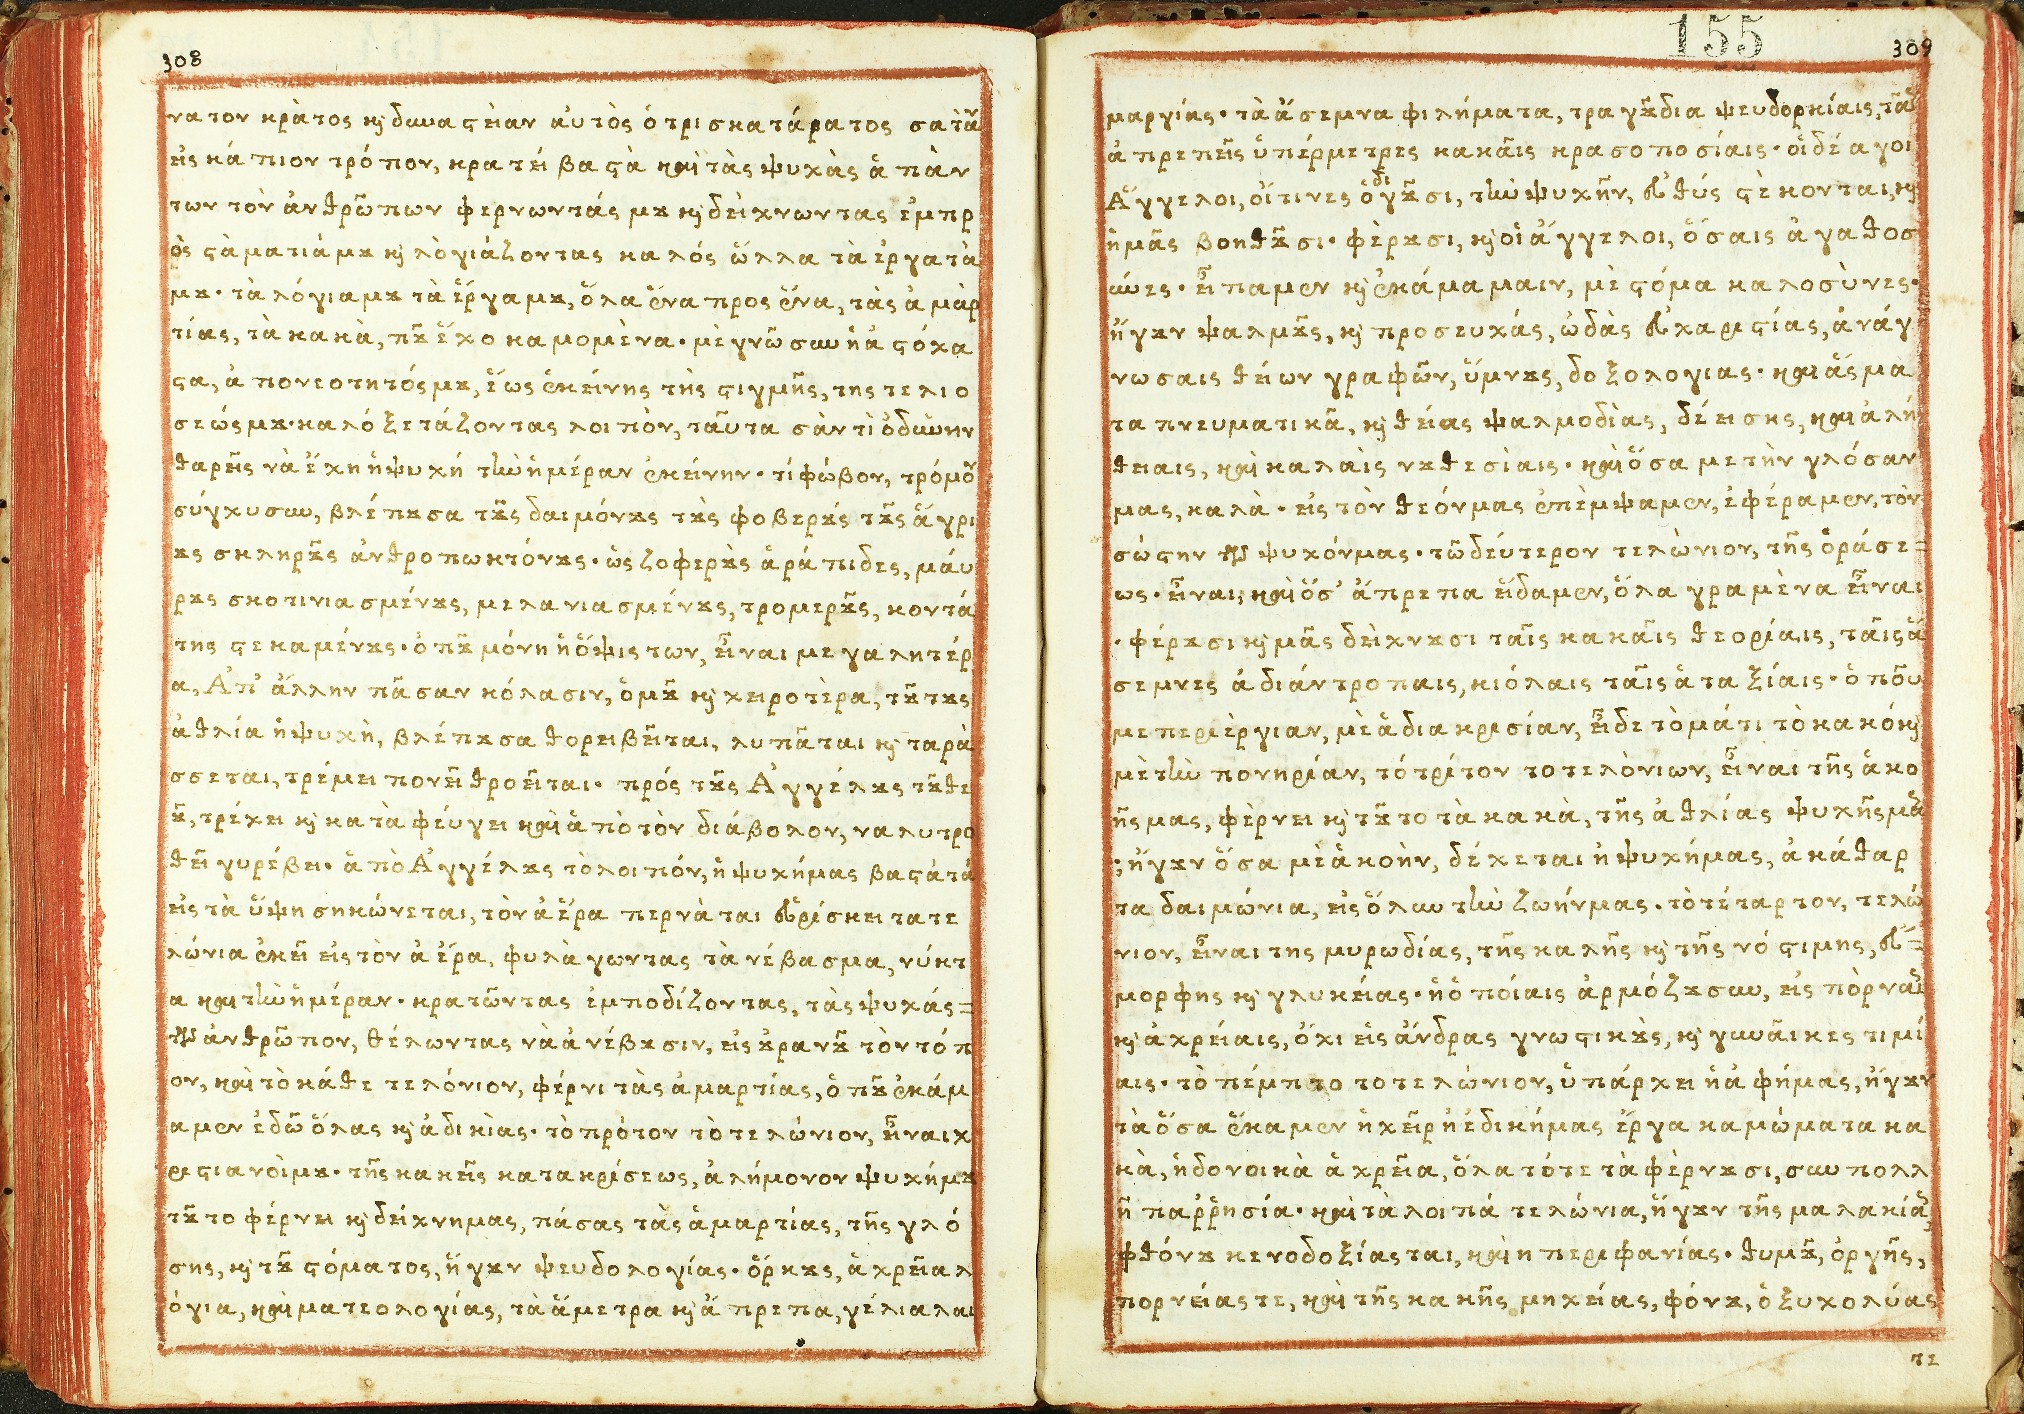 308
νατον κράτος κ̀ δυναςείαν αὐτὸς ὁ τρισκατάρατος σατὰν
εἰς κάπιον τρόπον, κρατεί βαςὰ καὶ τὰς ψυχὰς ἁπὰν
των τὸν ἀνθρώπων φερνωντάς μȣ κ̀ δείχνωντας ἐμπρ
ὸς ςὰ ματιά μȣ κ̀ λὸγιάζοντας καλός ὥλλα τὰ ἐργατὰ
μȣ· τὰ λόγια μȣ τὰ ἔργα μȣ, ὅλα ἕνα προς ἕνα, τὰς ἁμὰρ
τίας, τὰ κακὰ, πȣ̃ ἔχο καμομένα· μὲ γνῶσιν ἢ ἀςόχα
ςα, ἀπονεοτητός μȣ, ἕως ἐκείνης τῆς ςιγμῆς, της τελιο
σεώς μȣ· καλό ξετάζοντας λοιπὸν, ταῦτα σὰν τὶ ὀδύνην
θαρεῖς νὰ ἔχη ἡ ψυχή τὴν ἡμέραν ἐκείνην· τί φώβον, τρόμον
σύγχυσιν, βλέπȣσα τȣ̀ς δαιμόνȣς τȣ̀ς φοβερȣ́ς τȣ̀ς ἄγρι
ȣς σκληρȣ̀ς ἀνθροπωκτόνȣς· ὡς ζοφερȣ̀ς ἀράπιδες, μάυ
ρȣς σκοτινιασμένȣς, μελανιασμένȣς, τρομερȣ̀ς, κοντά
της ςεκαμένȣς· ὁπȣ̃ μόνη ἡ ὄψις των, εἶναι μεγαλητέρ
α, Ἀπ' ἄλλην πᾶσαν κόλασιν, ὁμȣ̃ κ̀ χειροτὲρα, τȣ́τȣς
ἀθλία ἡ ψυχὴ, βλέπȣσα θορειβεῖται, λυπᾶται κ̀ ταρὰ
σσεται, τρέμει πονεῖ θροεῖται· πρός τȣ̀ς Ἀγγέλȣς τȣ̃ θε
ȣ̃, τρέχει κ̀ καταφέυγει καὶ ἀπὸ τὸν διάβολον, να λυτρο
θεῖ γυρέβει· ἀπὸ Ἀγγέλȣς τὸ λοιπόν, ἡ ψυχή μας βαςάτα
εἰς τὰ ὕψη σηκώνεται, τὸν ἀέρα περνὰται εὑρίσκει τα τε
λώνια ἐκεῖ εἰς τὸν ἀέρα, φυλὰγωντας τὰ νέβασμα, νύκτ
α καὶ τὴν ἡμέραν· κρατῶντας ἐμποδίζοντας, τὰς ψυχάς=
τῶν ἀνθρῶπον, θέλωντας νὰ ἀνέβȣσιν, εἰς ȣ̓ρανȣ̃ τὸν τόπ
ον, καὶ τὸ κάθε τελόνιον, φέρνι τὰς ἁμαρτίας, ὁπȣ̃ ἐκάμ
αμεν ἐδῶ ὅλας κ̀ ἀδικίας· τὸ πρότον τὸ τελώνιον, εἶναι χ
ριςιανοὶ μȣ· τῆς κακῆς κατακρίσεως, ἀλήμονον ψυχή μȣ
τȣ̃το φέρνει κ̀ δείχνη μας, πάσας τὰς ἁμαρτίας, τῆς γλό
σης, κ̀ τȣ̃ ςόματος, ἤγȣν ψευδολογίας· ὅρκȣς, ἀχρεῖα λ
όγια, καὶ ματεολογίας, τὰ ἄμετρα κ̀ ἄπρεπα, γέλια λαι
155
309
μαργίας· τὰ ἄσεμνα φιλήματα, τραγȣ̃δια ψευδορκίαις, τὰς
ἀπρεπεῖς ὑπέρμετρες κακαῖς κρασοποσίαις· οἱ δέ ἁγοι
Ἄγγελοι, οἵτινες ὁδιγȣ̃σι, τὴν ψυχῆν, εὐθύς ςὲκονται, κ̀
ἡμᾶς βοηθȣ̃σι· φὲρȣσι, κ̀ οἱ ἄγγελοι, ὅσαις ἀγαθοσ
ύνες· εἴπαμεν κ̀ ἐκάμαμαιν, μὲ ςόμα καλοσὺνες·
ἤγȣν ψαλμȣ̀ς, κ̀ προσευχάς, ὠδὰς εὐχαριςίας, ἀνάγ
νωσαις θείων γραφῶν, ὕμνȣς, δοξολογιας· καὶ ἄσμα
τα πνευματικᾶ, κ̀ θείας ψαλμοδὶας, δέεισης, καὶ ἀλή
θειαις, καὶ καλαὶς νȣθεσίαις· καὶ ὅσα με τὴν γλόσαν
μας, καλὰ· εἰς τὸν θεόν μας ἐπὲμψαμεν, ἐφέραμεν, τὸν
σώςην τῶν ψυχόν μας· τῶ δέυτερον τελώνιον, τῆς ὁράσε=
ως· εἶναι, καὶ ὅσ' ἄπρεπα εἴδαμεν, ὅλα γραμὲνα εἶναι
· φέρȣσι κ̀ μᾶς δεὶχνȣσι ταῖς κακαῖς θεορίαις, ταῖς ἄ
σεμνες ἀδιάντροπαις, κιόλαις ταῖς ἀταξίαις· ὁποῦ
με περιέργιαν, μὲ ἀδιακρισίαν, εἶδε τὸ μάτι τὸ κακό κ̀
μὲ τὴν πονηρίαν, τό τρίτον το τελόνιων, εἶναι τῆς ἀκο
ῆς μας, φὲρνει κ̀ τȣ̃το τὰ κακὰ, τῆς ἀθλίας ψυχῆς μας
; ἤγȣν ὅσα μὲ ἀκοὴν, δέχεται ἡ ψυχή μας, ἀκάθαρ
τα δαιμώνια, εἰς ὅλην τὴν ζωήν μας· τὸ τέταρτον, τελώ
νιον, εἶναι της μυρωδίας, τῆς καλῆς κ̀ τῆς νόςιμης, εὐ=
μορφης κ̀ γλυκείας· ἡ ὁποίαις ἁρμόζȣσιν, εἰς πὸρναις
κ̀ ἀχρείαις, ὄχι εἰς ἄνδρας γνωςικȣ̀ς, κ̀ γυναῖκες τιμί
αις· τὸ πέμπτο το τελώνιον, ὑπάρχει ἡ ἀφή μας, ἤγȣν
τὰ ὅσα ἔκαμεν ἡ χεῖρ ἡ ἐδική μας ἔργα καμώματα κα
κὰ, ἡδονοικὰ ἀχρεῖα, ὅλα τότε τὰ φὲρνȣσι, συν πολλ
ῆ παῤῥησία· καὶ τὰ λοιπά τελώνια, ἤγȣν τῆς μαλακίας
φθόνȣ κενοδοξίας ται, καὶ η περιφανίας· θυμȣ̃, ὀργῆς,
πορνείας τε, καὶ τῆς κακῆς μηχείας, φόνȣ, ὀξυχολύας
τε